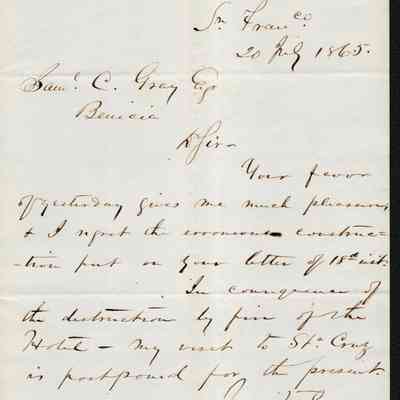 Sn Franco
20 July 1865.
Saml. C. Gray Esq
Benicia
D Sir
Your favor
of yesterday gives me much pleasure,
& I regret the erroneous construc-
-tion put on your letter of 18th inst.
In consequence of
the destruction by fire of the
Hotel - my visit to Sta Cruz
is postponed for the present.